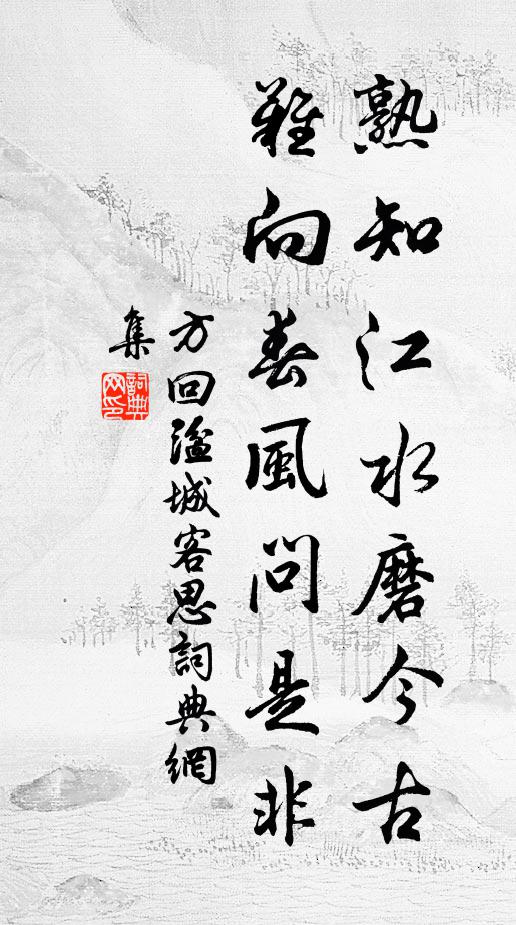 熟知江水磨今古
難向春風問是非
方回湓城客思詞典網
集
詞典网印